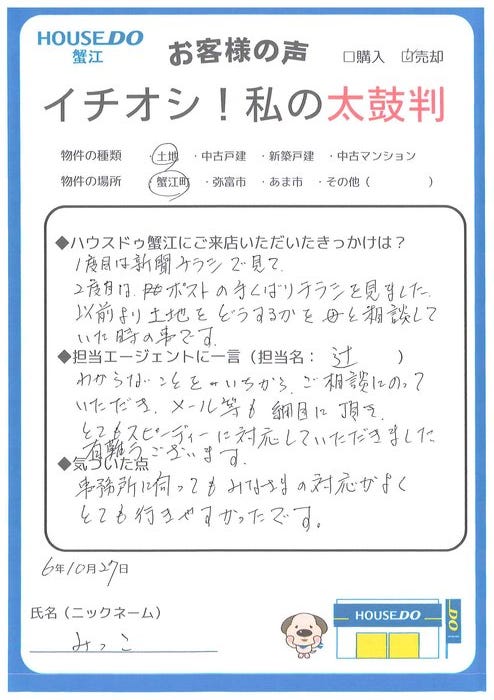 HOUSE DO
蟹江
お客様の声
□購入 ☑売却
イチオシ！私の太鼓判
物件の種類 ・土地 ・中古戸建 ・新築戸建 ・中古マンション
物件の場所 ・蟹江町 ・弥富市 ・あま市 ・その他（ ）
◆ハウスドゥ蟹江にご来店いただいたきっかけは？
1度目は新聞チラシで見て、
2度目は、ポストの手くばりチラシを見ました。
以前より土地をどうするかを母と相談して
いた時の事です。
◆担当エージェントに一言（担当名： 辻 ）
わからないことを いちから、ご相談にのって
いただき、メール等も 綱目に頂き、
とてもスピーディーに対応していただきました
有難うございます。
◆気づいた点
事務所に伺っても みなさまの対応がよく
とても行きやすかったです。
6年10月27日
氏名（ニックネーム）
みっこ
HOUSE DO
DO